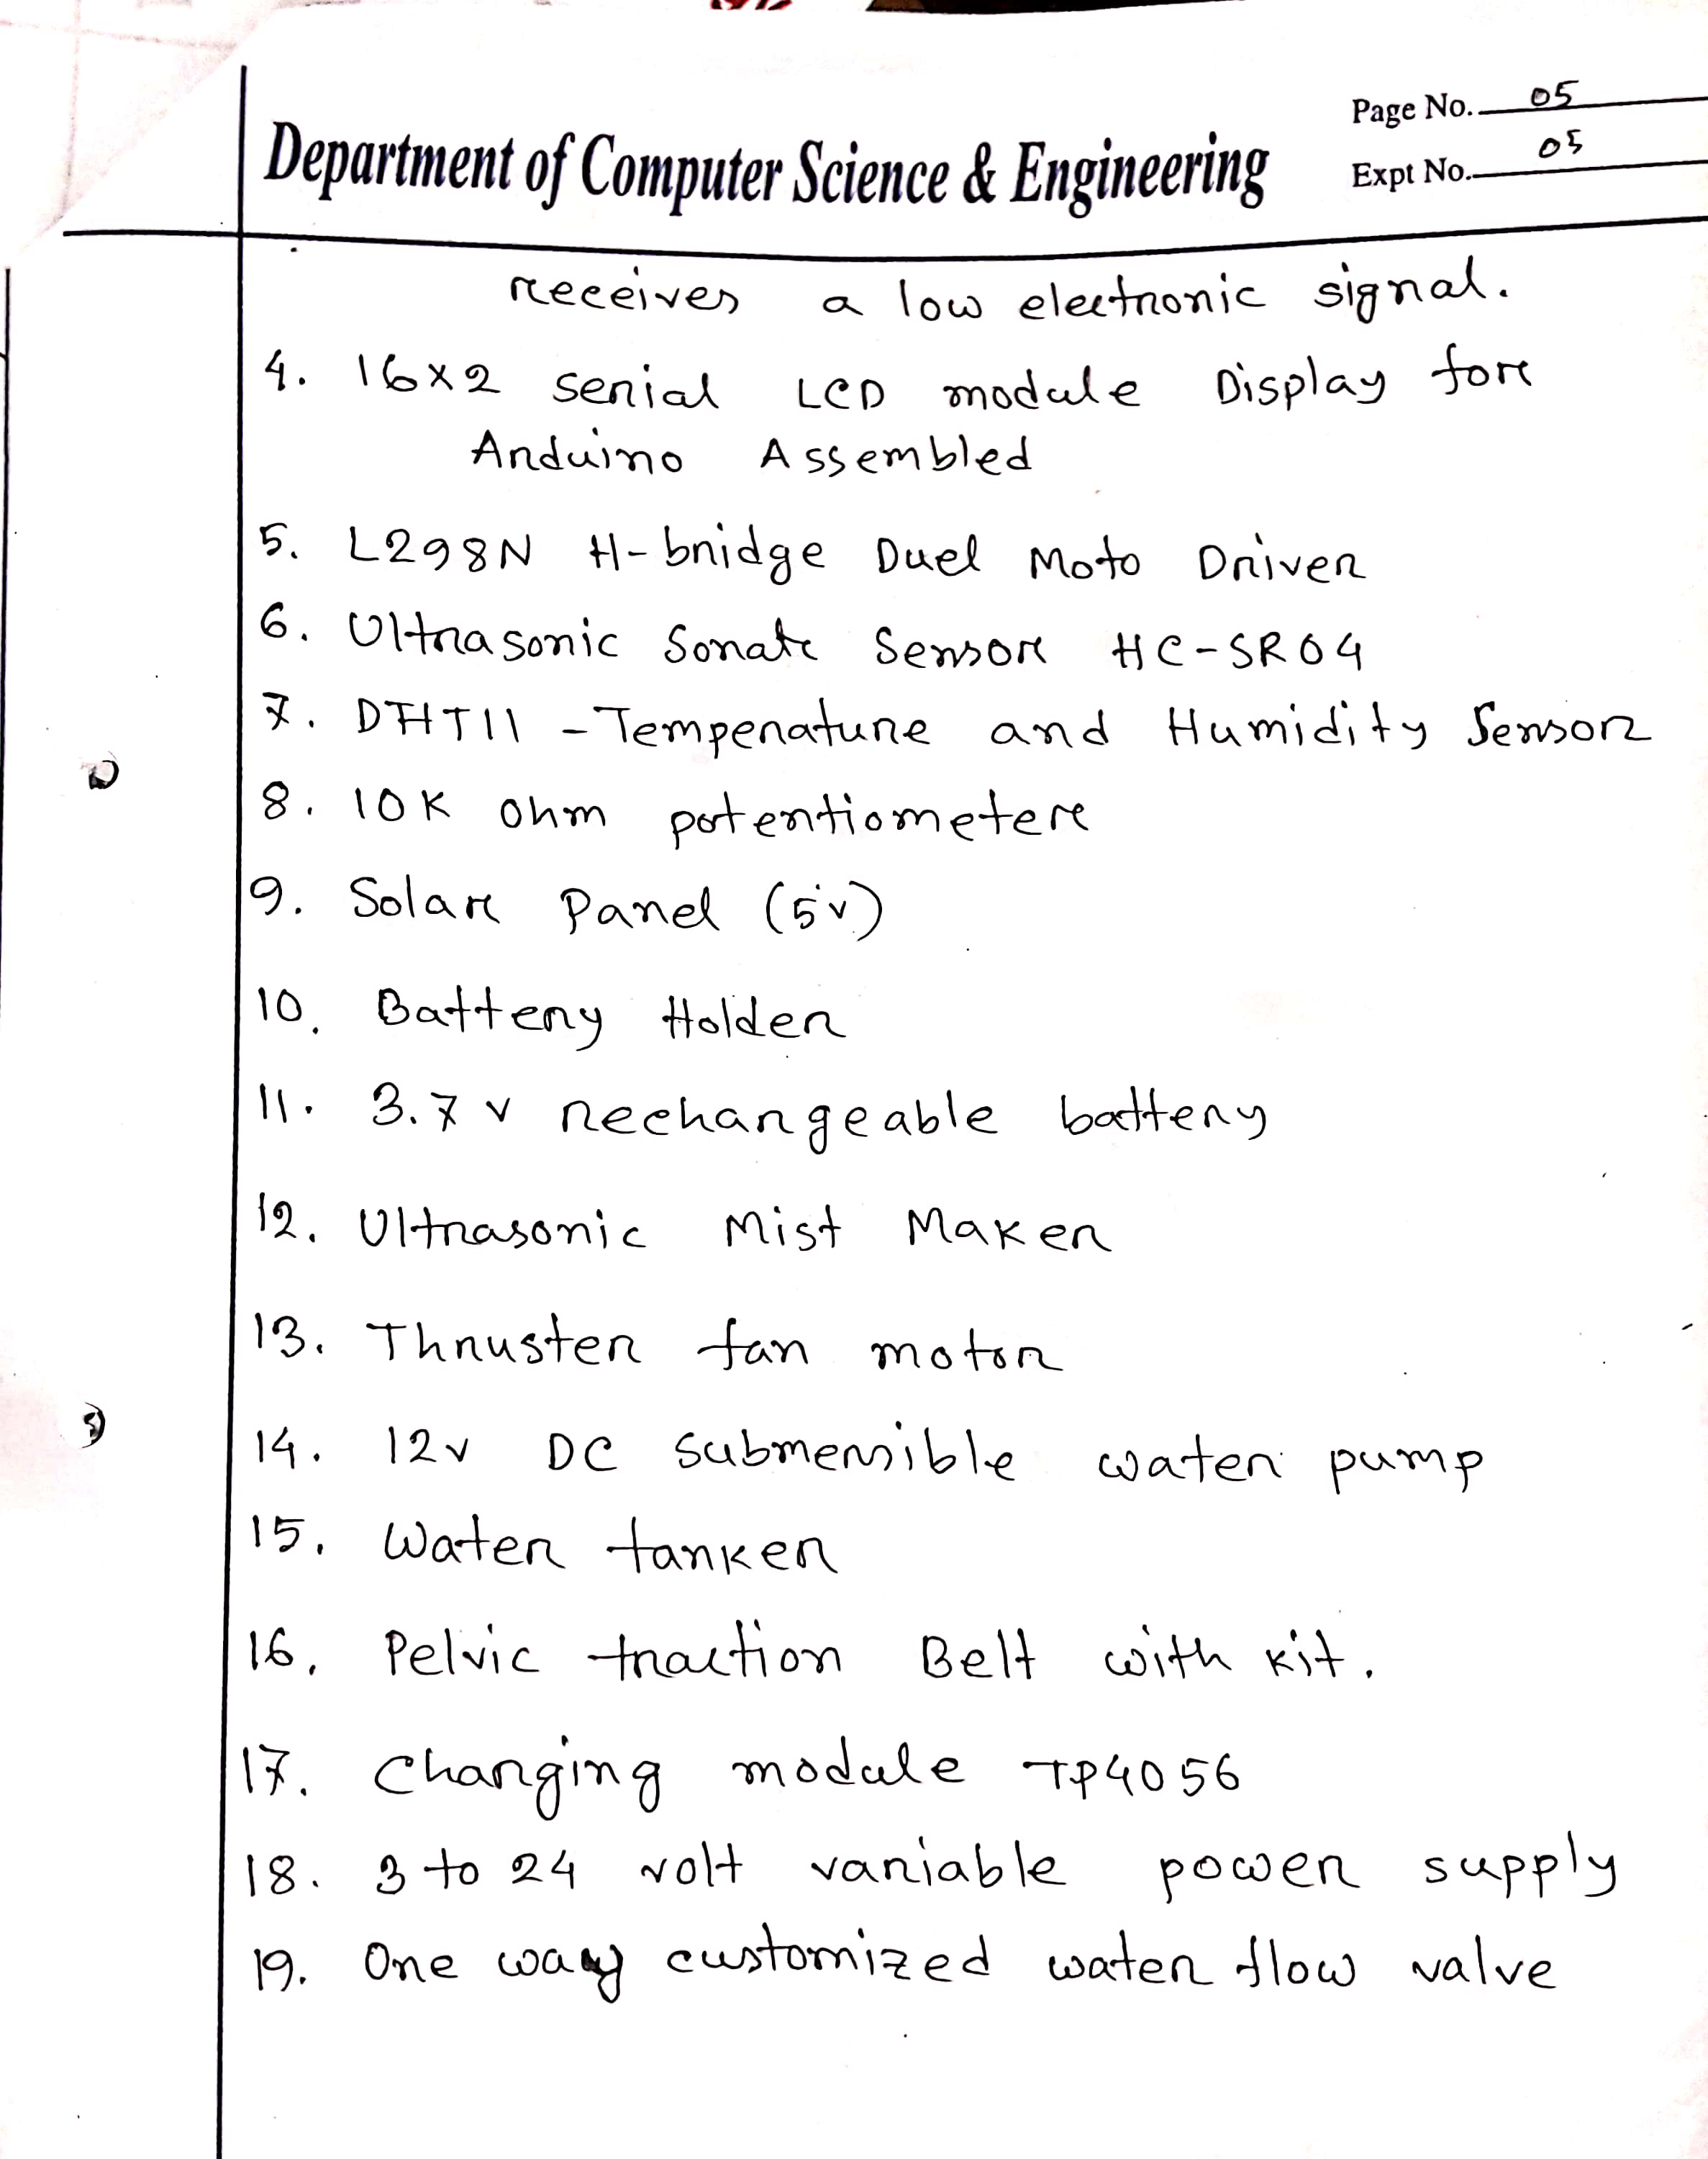 Page No. 05
Department of Computer Science & Engineering
Expt No. 05
receives a low electronic signal.
4. 16x2 serial LCD module Display for
Arduino Assembled
5. L298N H-bridge Duel Moto Driver
6. Ultrasonic Sonar Sensor HC-SR04
7. DHT11 - Temperature and Humidity Sensor
8. 10K ohm potentiometer
9. Solar Panel (5v)
10. Battery Holder
11. 3.7 v rechargeable battery
12. Ultrasonic Mist Maker
13. Thruster fan motor
14. 12v DC submersible water pump
15. Water tanker
16. Pelvic traction Belt with kit.
17. Charging module TP4056
18. 3 to 24 volt variable power supply
19. One way customized water flow valve